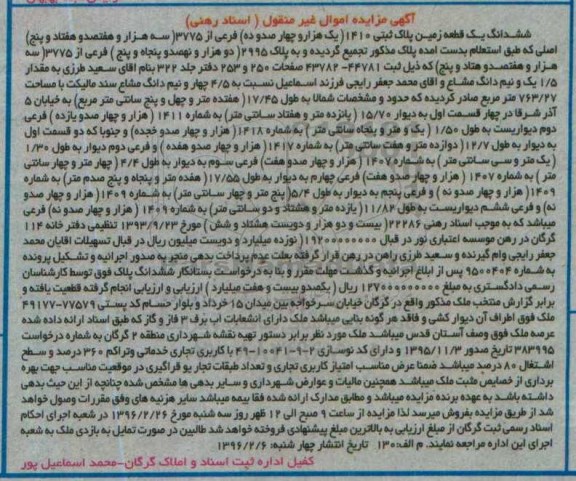 آگهی مزایده اموال غیر منقول ( اسناد رهنی)
ششدانگ یک قطعه زمین پلاک ثبتی ۱۴۱۰( یک هزارو چهار صدو ده) فرعی از ۳۷۷۵( سه هزار و هفتصدو هفتاد و پنج)
اصلی که طبق استعلام بدست امده پلاک مذکور تجمیع گردیده و به پلاک ۲۹۹۵( دو هزار و نهصدو پنجاه و پنج) فرعی از ۳۷۷۵( سه
هزار و هفتصدو هتاد و پنج) که ذیل ثبت ۴۴۷۸۱- ۴۳۷۸۲ صفحات ۲۵۰ و ۲۵۳ دفتر جلد ۳۲۲ بنام اقای سعید طرزی به مقدار
۱/۵ یک و نیم دانگ مشاع و اقای محمد جعفر رایجی فرزند اسماعیل نسبت به ۴/۵ چهار و نیم دانگ مشاع سند مالیکت با مساحت
۷۶۳/۲۷ متر مربع صادر گردیده که حدود و مشخصات شمالا به طول ۱۷/۴۵( هفتده متر و چهل و پنج سانتی متر مربع) به خیابان ۵
آذر شرقا در چهار قسمت اول به دیوار ۱۵/۷۰ ( پانزده متر و هفتاد سانتی متر) به شماره ۱۴۱۱ ( هزار و چهار صدو یازده ) فرعی
دوم دیواریست به طول ۱/۵۰ ( یک و متر و پنجاه سانتی متر ) به شماره ۱۴۱۸( هزار و چهار صدو خجده) و جنوبا که دو قسمت اول
به دیوار به طول ۱۲/۷( دوازده متر و هفت سانتی متر) به شماره ۱۴۱۷( هزار و چهار صدو هفده ) و فرعی دوم دیوار به طول ۱/۳۰
( یک متر و سی سانتی متر) به شماره ۱۴۰۷ ( هزار و چهار صدو هفت) فرعی سوم به دیوار به طول ۴/۴( چهار متر و چهار سانتی
متر ) به شماره ۱۴۰۷ ( هزار و چهار صدو هفت) فرعی چهارم به دیوار به طول ۱۷/۵۵( هفده متر و پنجاه و پنج صدم متر) به شماره
۱۴۰۹( هزار و چهار صدو نه ) و فرعی پنجم به دیوار به طول ۵/۴( پنج متر و چهار سانتی متر) به شماره ۱۴۰۹( هزار و چهار صدو
نه) و فرعی ششم دیواریست به طول ۱۱/۸۲( یازده متر و هشتاد و دو سانتی متر) به شماره ۱۴۰۹ ( هزار و چهار صدو نه) فرعی
میباشد که به موجب اسناد رهنی ۲۲۲۸۶( بیست و دو هزار و دویست هشتاد و شش ) مورخ ۱۳۹۳/۹/۲۳ تنظیمی دفتر خانه ۱۱۴
گرگان در رهن موسسه اعتباری نور در قبال ۱۹۲۰۰۰۰۰۰۰۰( نوزده میلیارد و دویست میلیون ریال در قبال تسهیلات اقایان محمد
جعفر رایجی وام گیرنده و سعید طرزی راهن در رهن قرار گرفته بعلت عدم پرداخت بدهی منجر به صدور اجرائیه و تشکیل پرونده
به شماره ۹۵۰۰۴۰۴ پس از ابلاغ اجرائیه و گذشت مهلت مقرر و بنا به درخواست بستانکار ششدانگ پلاک فوق توسط کارشناسان
رسمی دادگستری به مبلغ ۱۲۷۰۰۰۰۰۰۰۰۰ ریال ( یکصدو بیست و هفت میلیارد ) ارزیابی و ارزیابی انجام گرفته قطعیت یافته و
برابر گزارش منتخب ملک مذکور واقع در گرگان خیابان سرخواجه بین میدان ۱۵ خرداد و بلوار حسام کد پستی ۷۷۵۷۹-۴۹۱۷۷
ملک فوق اطراف آن دیوار کشی و فاقد هر گونه بنایی میباشد ملک دارای انشعابات اب برق ۳ فاز و گاز که طبق اسناد ارائه داده شده
عرصه ملک فوق وصف آستان قدس میباشد ملک مورد نظر برابر دستور تهیه نقشه شهرداری منطقه ۲ گرگان به شماره درخواست
۳۸۳۹۹۵ تاریخ صدور ۱۳۹۵/۱۱/۳ و دارای کد نوسازی ۲-۹-۱۰۰۴۱-۴۹ با کاربری تجاری خدماتی وتراکم ۳۶۰ درصد و سطح
اشتغال ۸۰ درصد میباشد ضمنا عرض مناسب امتیاز کاربری تجاری و تعداد طبقات تجار یو قراگیری در موقعیت مناسب جهت بهره
برداری از خصایص مثبت ملک میباشد همچنین مالیات و عوارض شهرداری و سایر بدهی ها مشخص شده چنانچه از این حیث بدهی
داشته باشد به عهده برنده مزایده میباشد و مطابق مدارک ارائه شده فقا بیمه میباشد سایر هزینه های وفق مقررات وصول خواهد
شد از طریق مزایده بفروش میرسد لذا مزایده از ساعت ۹ صبح الی ۱۲ ظهر روز سه شنبه مورخ ۱۳۹۶/۲/۲۶ در شعبه اجرای احکام
اسناد رسمی ثبت گرگان از مبلغ ارزیابی به بالاترین مبلغ پیشنهادی فروخته خواهد شد طالبین در صورت تمایل به بازدی ملک به شعبه
اجرای این اداره مراجعه نمایند. م الف:۱۳۰ تاریخ انتشار چهار شنبه: ۱۳۹۶/۲/۶
کفیل اداره ثبت اسناد و املاک گرگان-محمد اسماعیل پور